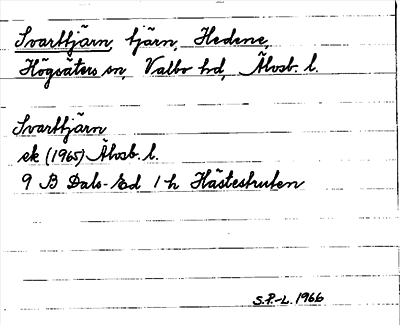 Svarttjärn, tjärn, Hedene,
Högsäters sn, Valbo hd, Älvsb. l.
Svarttjärn
ek (1965) Älvsb. l.
9 B Dals-Ed 1 h Hästestruten
S.P.-L. 1966